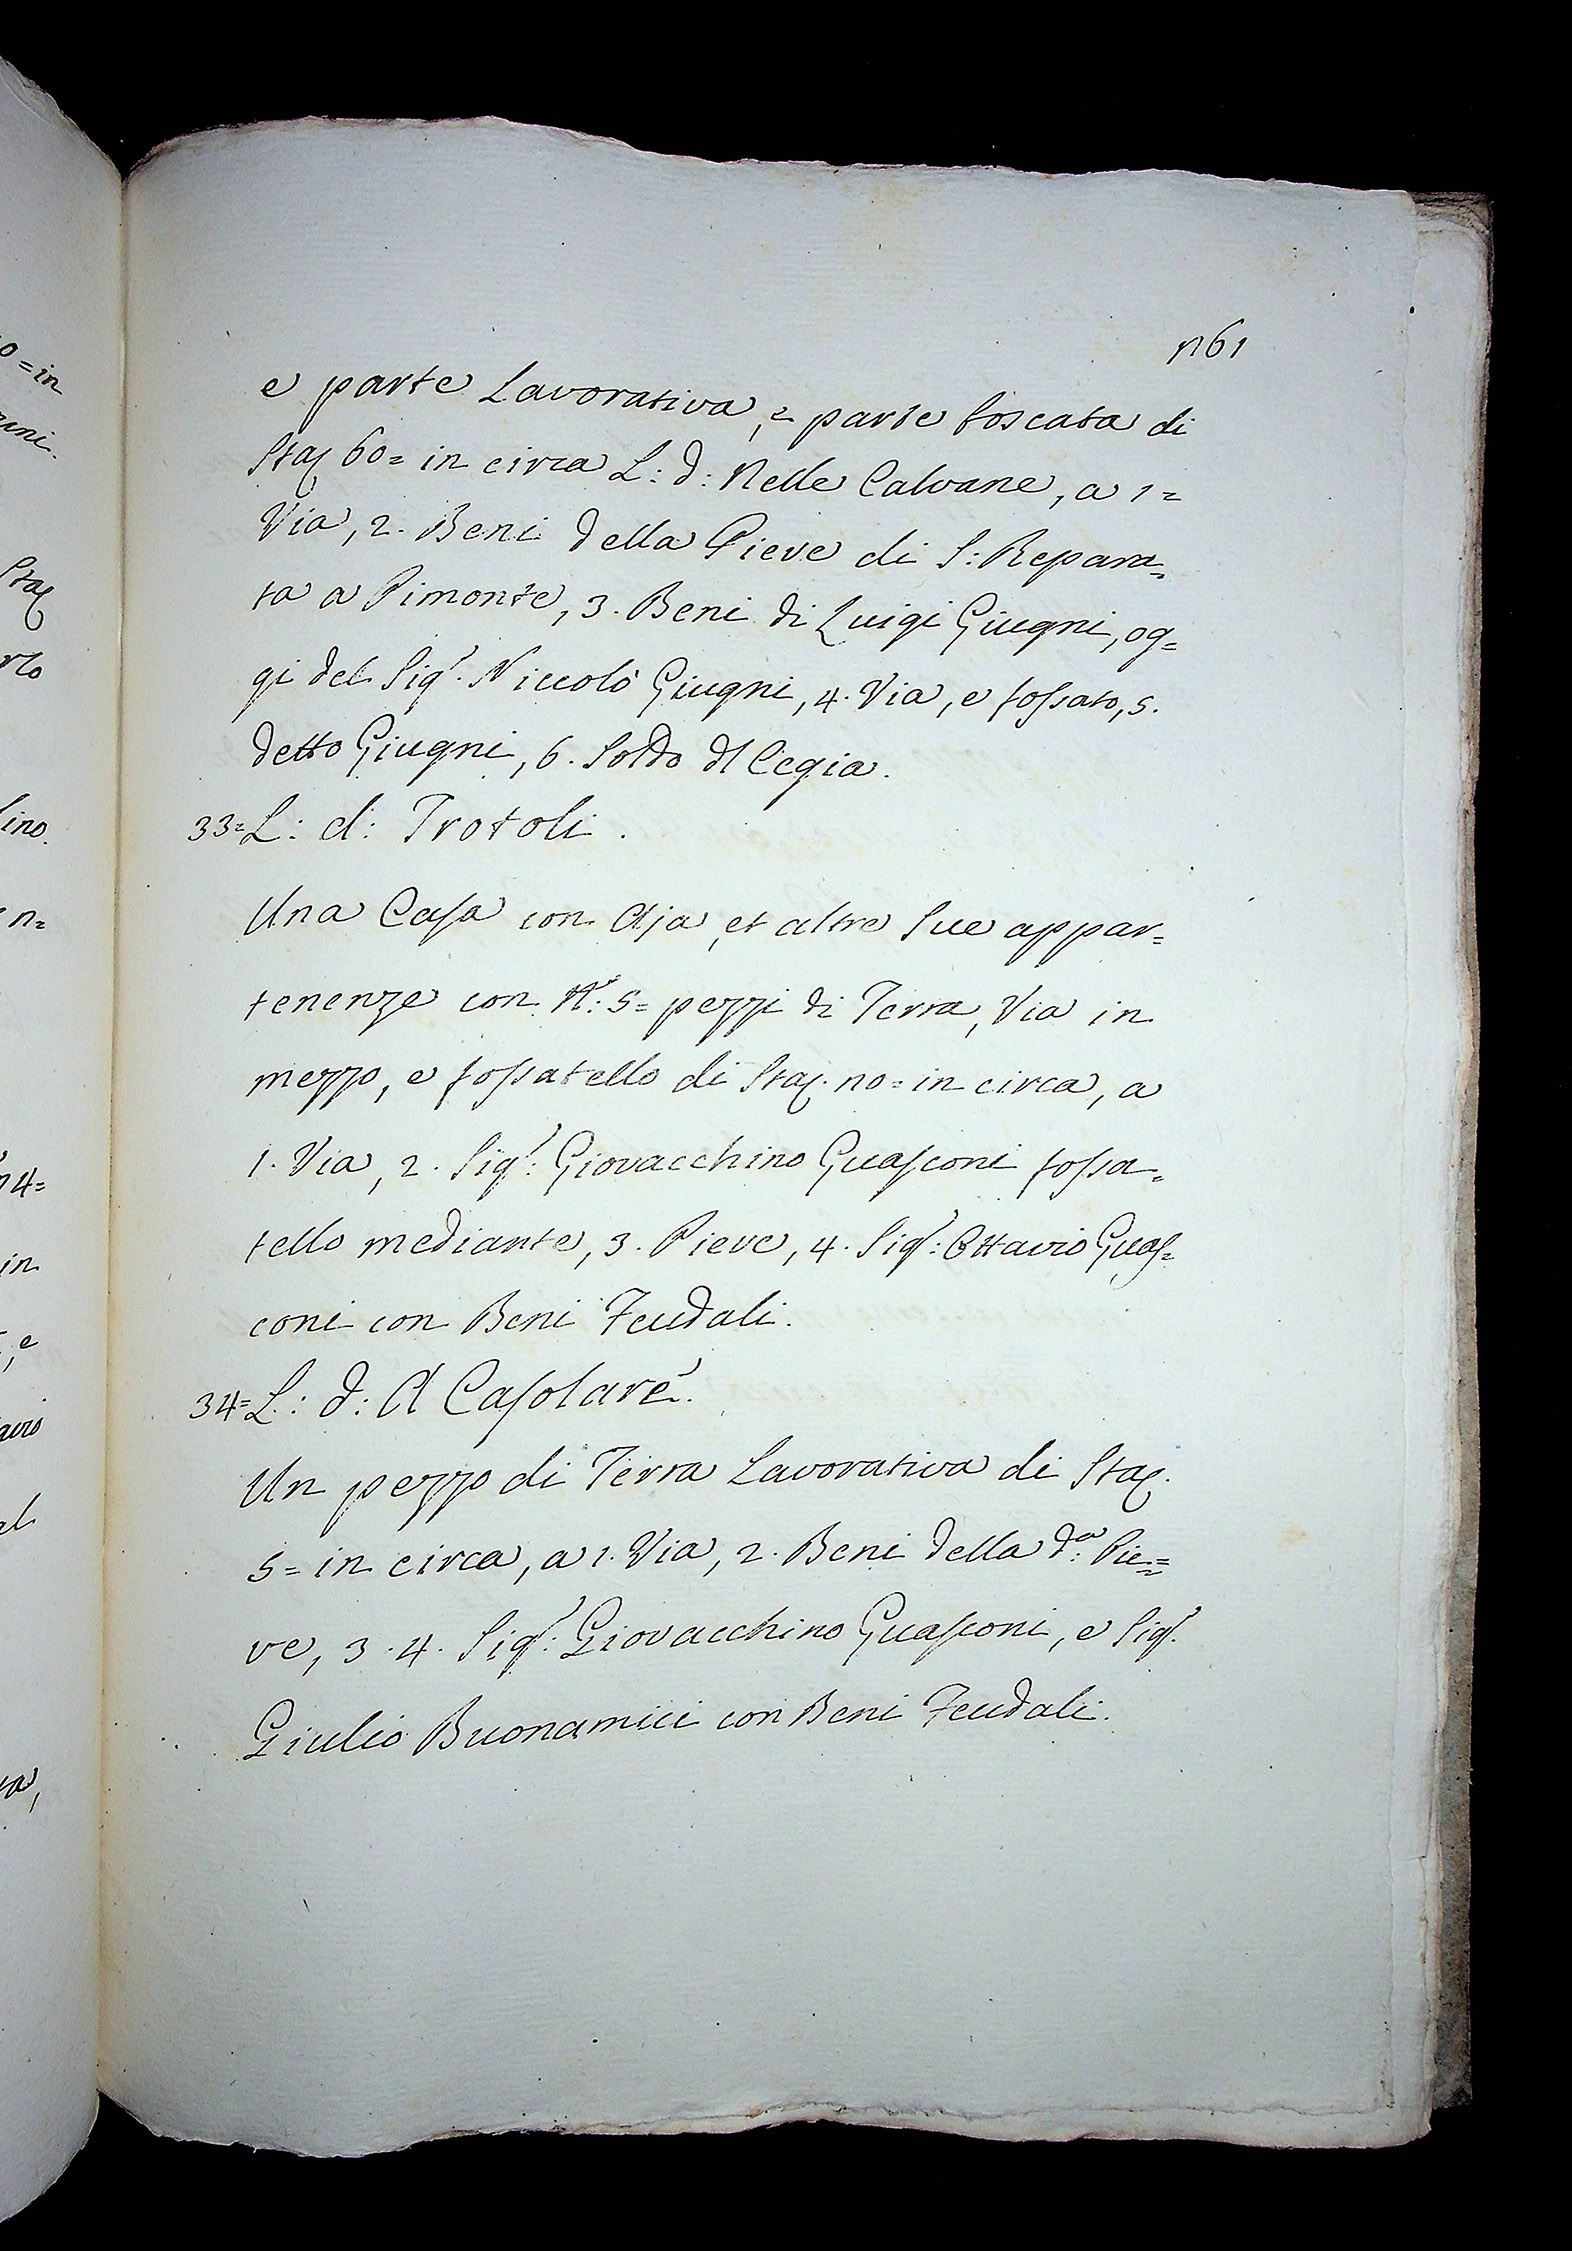 n61
e parte Lavorativa, e parte boscata di
Stai 60= in circa L: d: Nelle Calvane, a 1=
Via, 2. Beni della Pieve di S: Repara=
ta a Pimonte, 3. Beni di Luigi Giugni, og=
gi del Sigr. Niccolò Giugni, 4. Via, e fossato, 5.
detto Giugni, 6. Soldo dl Cegia.
33= L: d: Trotoli.
Una Casa con Aja, et altre Sue appar=
tenenze con N.o: 5= pezzi di Terra, Via in
mezzo, e fossatello di Stai. no= in circa, a
1. Via, 2. Sigr: Giovacchino Guasconi fossa=
tello mediante, 3. Pieve, 4. Sigr: Ottavio Guas=
coni con Beni Feudali.
34= L: d: A Casolare.
Un pezzo di Terra Lavorativa di Stai.
5= in circa, a 1. Via, 2. Beni della d:a Pie=
ve, 3. 4. Sigr: Giovacchino Guasconi, e Sigr.
Giulio Buonamici con Beni Feudali.